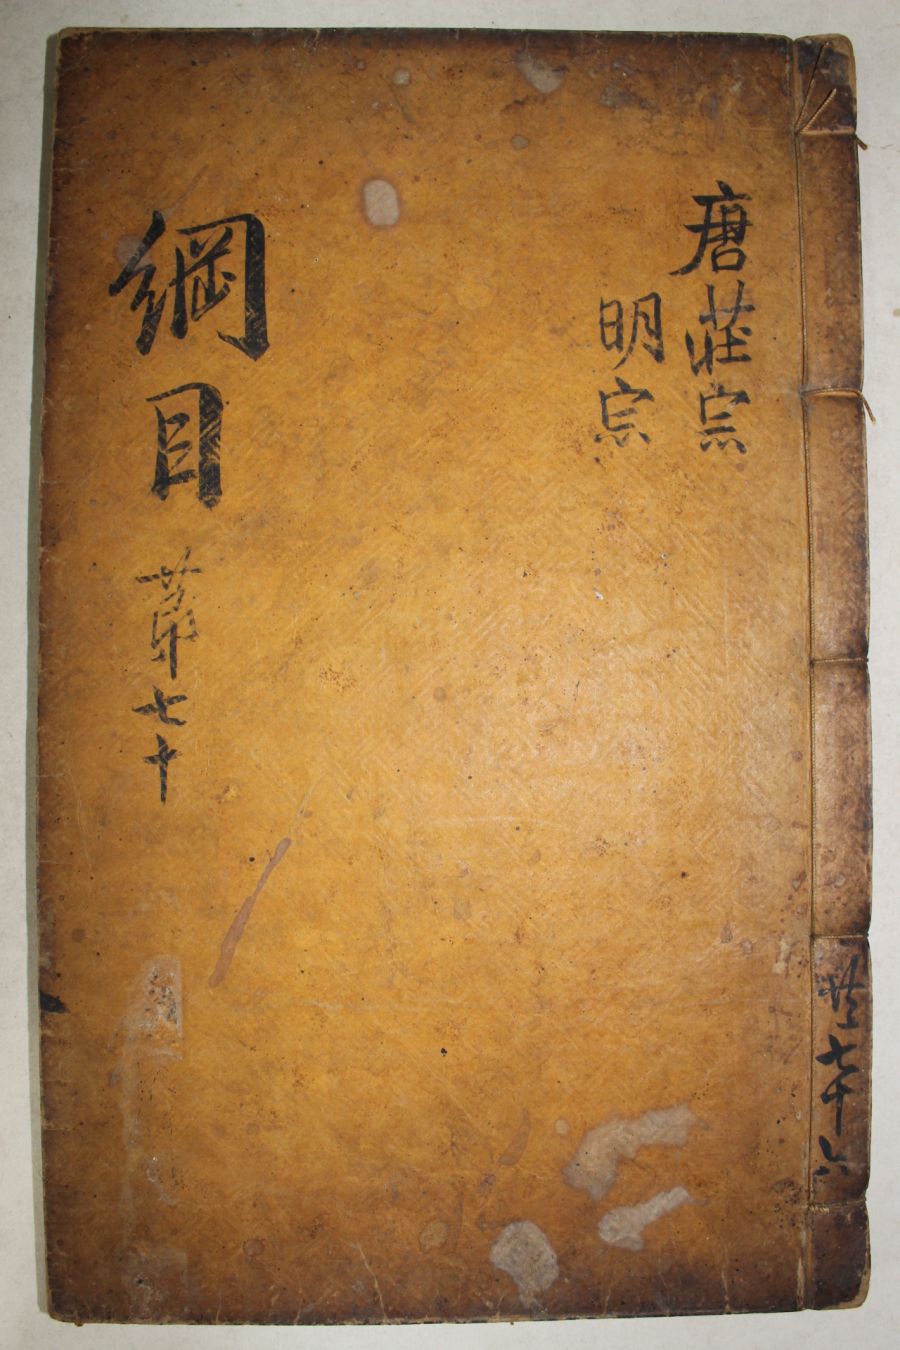 唐莊宗
明宗
綱目 苐七十
共七十六